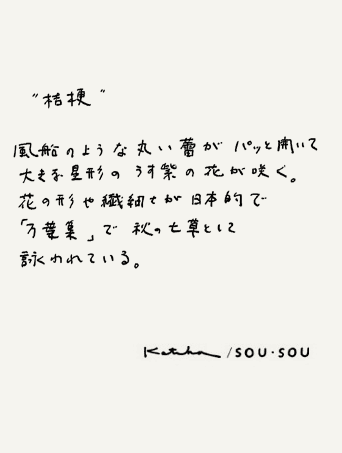 "桔梗"
風船のような丸い蕾が パッと開いて
大きな星形の うす紫の花が咲く。
花の形や繊細さが日本的で
「万葉集」で 秋の七草として
詠われている。
Katsuji /SOU・SOU